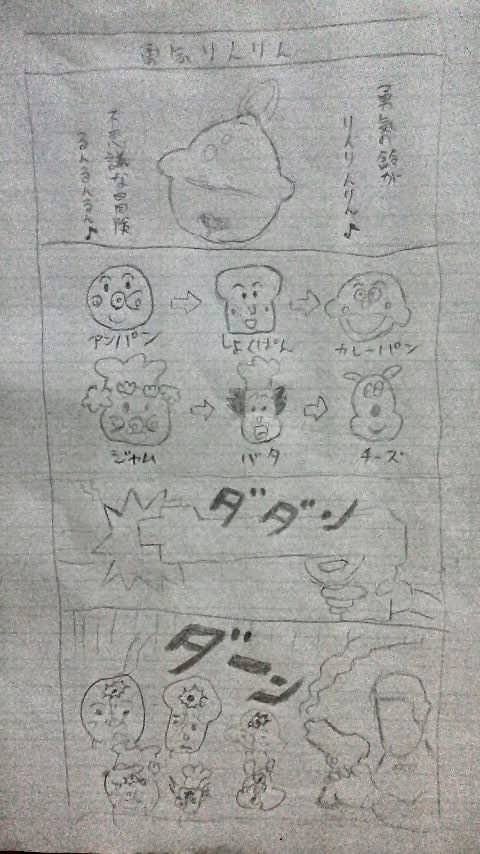 勇気りんりん
勇気の鈴が
りんりんりん♪
不思議な冒険
るんるんるん♪
アンパン
しょくぱん
カレーパン
ジャム
バタ
チーズ
ダダン
ダーン